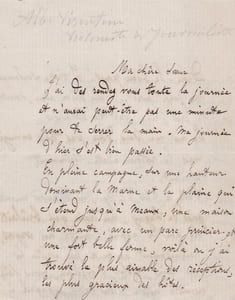 Ma chère Sœur
j'ai des rendez vous toute la journée
et n'aurai peut-être pas une minute
pour te serrer la main. Ma journée
d'hier s'est bien passée.
En pleine campagne, sur une hauteur
dominant la Marne et la plaine qui
s'étend jusqu'à Meaux, une maison
charmante, avec un parc princier et
une fort belle ferme, voilà où j'ai
trouvé la plus aimable des réceptions,
les plus gracieux des hôtes.